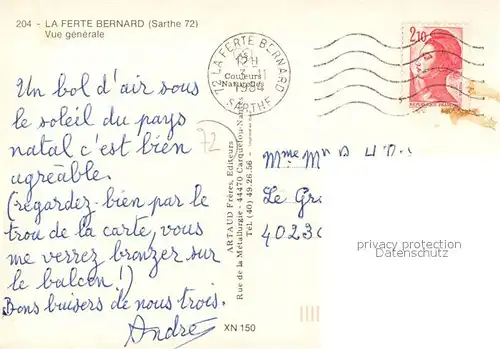 204 - LA FERTE BERNARD (Sarthe 72)
Vue générale
72 LA FERTE BERNARD
SARTHE
Couleurs
Naturelles
2,10
REPUBLIQUE FRANÇAISE
Un bol d'air sous
le soleil du pays
natal c'est bien
agréable.
(regardez bien par le
trou de la carte, vous
me verrez bronzer sur
le balcon!)
Bons baisers de nous trois.
André
72
ARTAUD Frères, Editeurs
Rue de la Métallurgie - 44470 Carquefou-Nantes
Tél. (40) 49.28.56
XN 150
Mme Mr
Le Gr
40230
privacy protection
Datenschutz